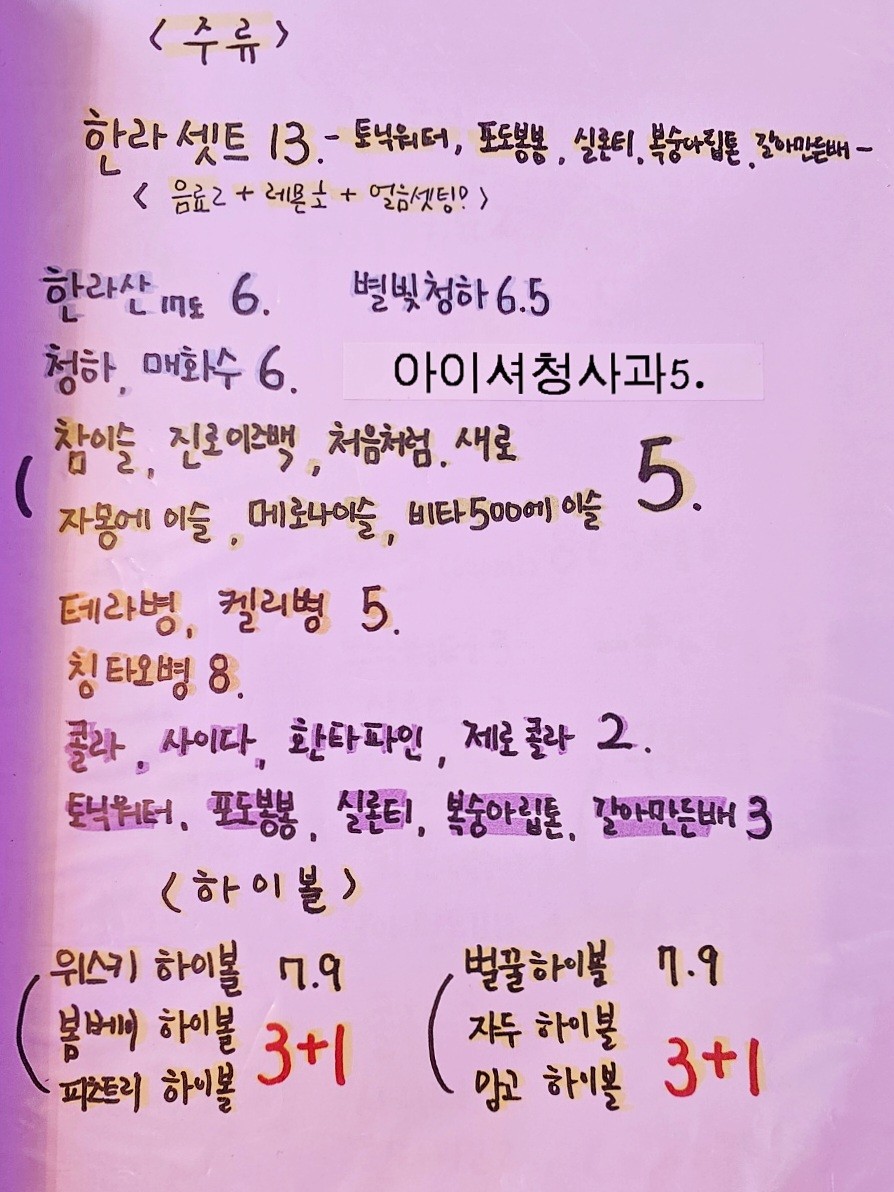 < 주류 >
한라 셋트 13.- 토닉워터, 포도봉봉, 실론티, 복숭아립톤, 갈아만든배 -
< 음료2 + 레몬1 + 얼음셋팅? >
한라산 17도 6. 별빛청하 6.5
청하, 매화수 6. 아이셔청사과5.
참이슬, 진로이즈백, 처음처럼. 새로 5.
자몽에 이슬, 메로나이슬, 비타500에 이슬
테라병, 켈리병 5.
칭타오병 8.
콜라, 사이다, 환타파인, 제로콜라 2.
토닉워터. 포도봉봉, 실론티, 복숭아립톤, 갈아만든배 3
< 하이볼 >
위스키 하이볼 7.9 벌꿀하이볼 7.9
봄베이 하이볼 3+1 자두 하이볼 3+1
피츠트리 하이볼 망고 하이볼